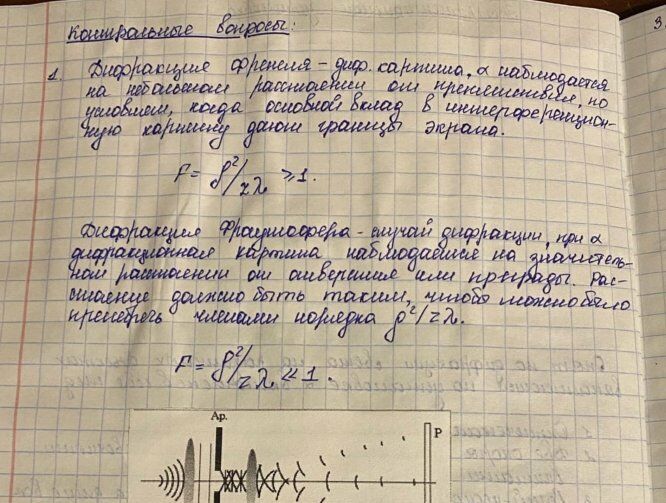 Контрольные вопросы:
3.
1. Дифракция Френеля – диф. картина, α наблюдается
на небольшом расстоянии от препятствия, по
условиям, когда основной вклад в интерференцион-
ную картину дают границы экрана.
F = ρ²/zλ ≥ 1.
Дифракция Фраунгофера – случай дифракции, при α
дифракционная картина наблюдается на значитель-
ном расстоянии от отверстия или преграды. Рас-
стояние должно быть таким, чтобы можно было
пренебречь членами порядка ρ²/zλ.
F = ρ²/zλ ≪ 1.
Ap.
P